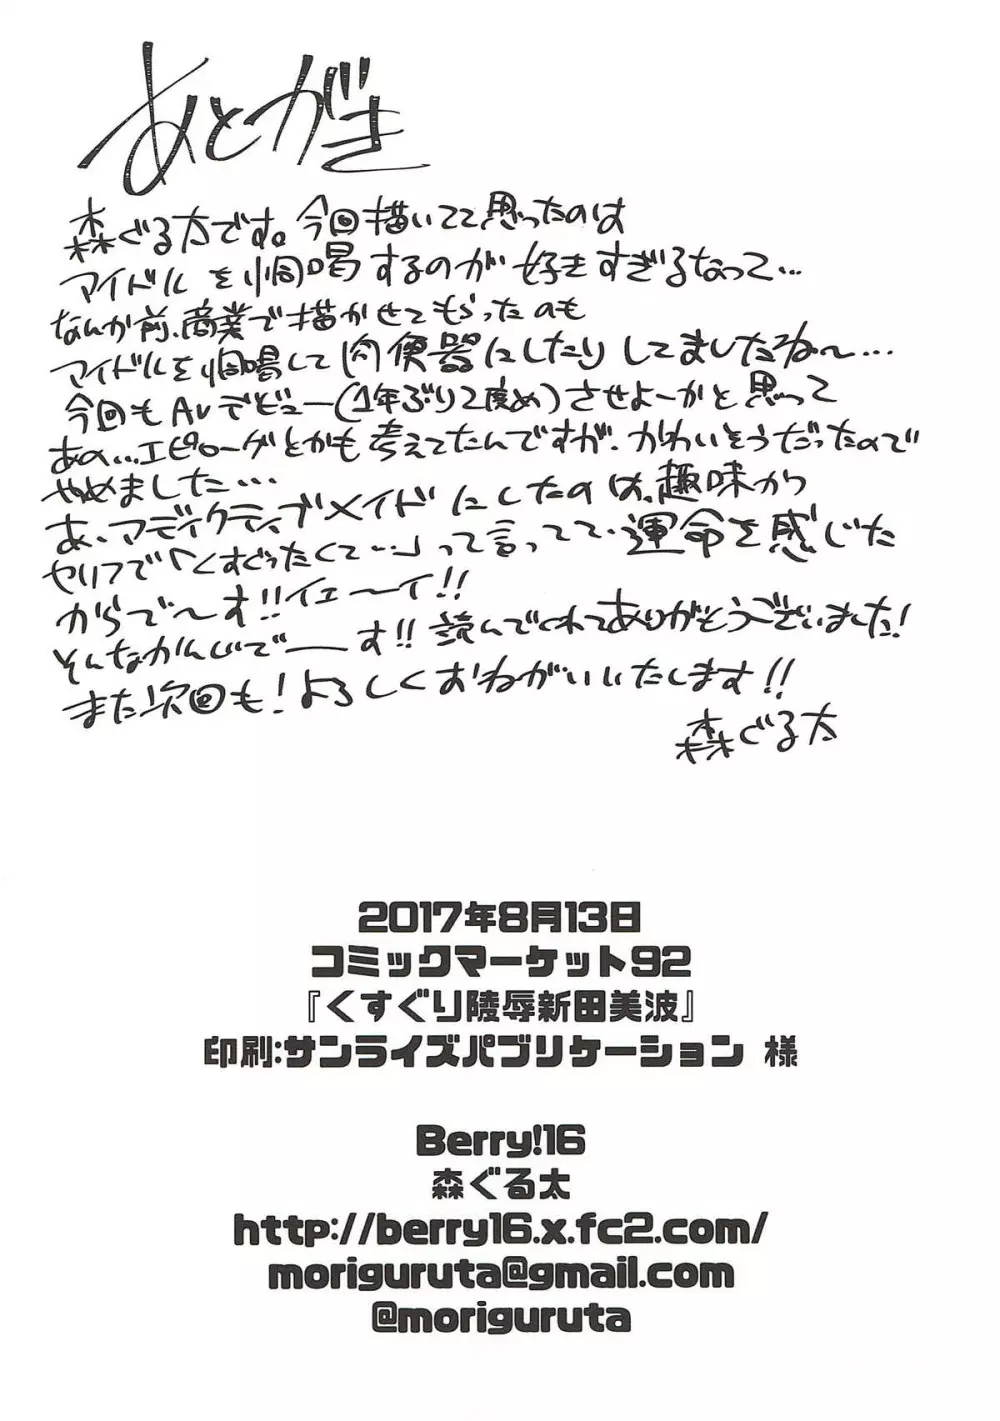 あとがき
森ぐる太です。今回描いてて思ったのは
アイドルを恫喝するのが好きすぎるなって…
なんか前、商業で描かせてもらったのも
アイドルを恫喝して肉便器にしたりしてましたね〜…
今回もAVデビュー(1年ぶり2度め)させよーかと思って
あの…エピローグとかも考えてたんですが、かわいそうだったので
やめました…
あ、アディクティブメイドにしたのは、趣味かつ
セリフで「くすぐったくて…」って言ってて、運命を感じた
からで〜す!!イェ〜イ!!
そんなかんじで―す!!読んでくれてありがとうございました!
また次回も!よろしくおねがいいたします!!
森ぐる太
2017年8月13日
コミックマーケット92
『くすぐり陵辱新田美波』
印刷:サンライズパブリケーション 様
Berry!16
森ぐる太
http://berry16.x.fc2.com/
moriguruta@gmail.com
@moriguruta